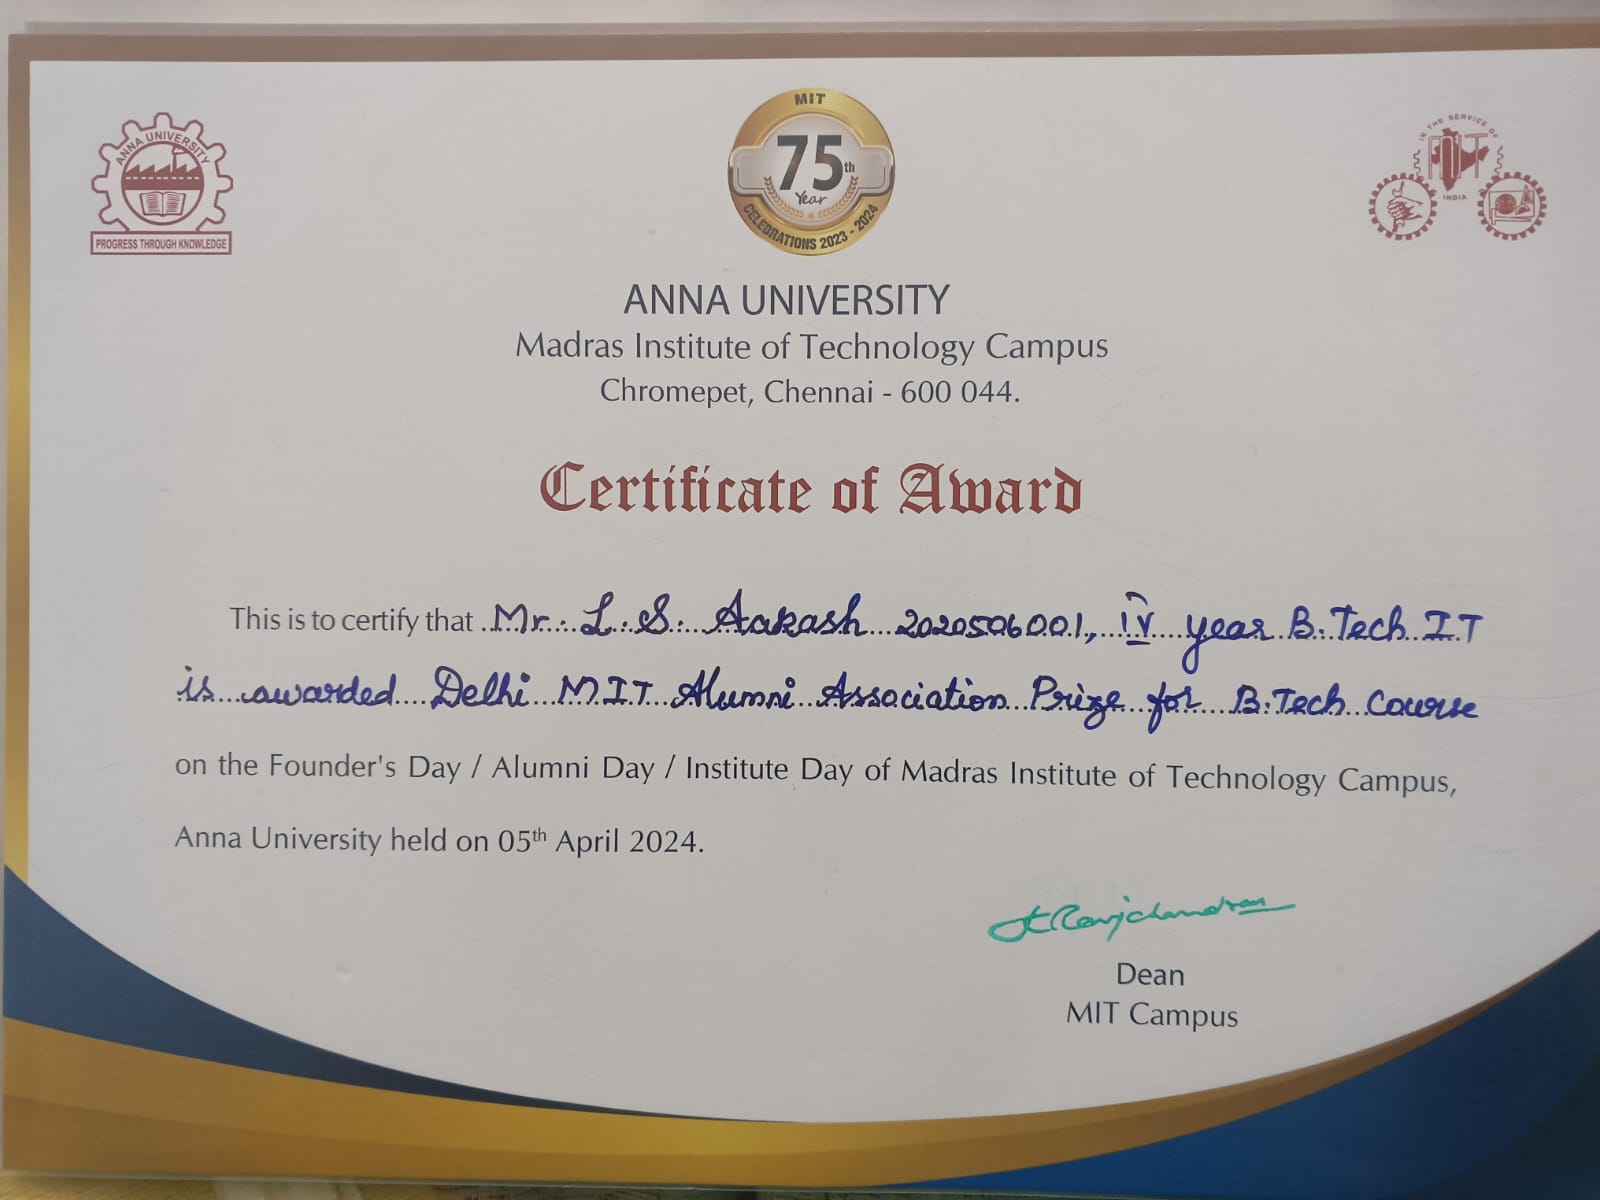 ANNA UNIVERSITY
PROGRESS THROUGH KNOWLEDGE
MIT
75th
Year
CELEBRATIONS 2023 - 2024
IN THE SERVICE OF
MIT
INDIA
ANNA UNIVERSITY
Madras Institute of Technology Campus
Chromepet, Chennai - 600 044.
Certificate of Award
This is to certify that Mr. L. S. Aakash 2020506001, IV year B.Tech IT
is awarded Delhi MIT Alumni Association Prize for B.Tech Course
on the Founder's Day / Alumni Day / Institute Day of Madras Institute of Technology Campus,
Anna University held on 05th April 2024.
Dean
MIT Campus